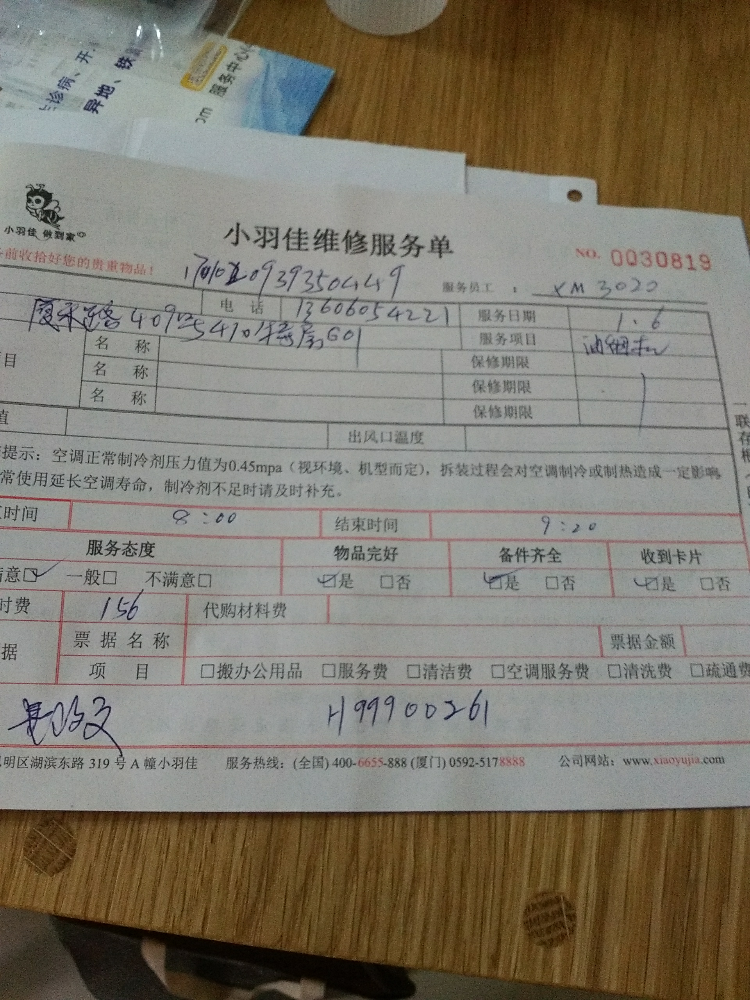 诊病、开
异地、铁
服务中心
小羽佳 做到家
小羽佳维修服务单
前收拾好您的贵重物品！
NO. 0030819
服务员工： XM 3020
电 话 13606054221 服务日期 1.6
名 称 服务项目 油烟机
目 名 称 保修期限
名 称 保修期限
保修期限
值 出风口温度
提示：空调正常制冷剂压力值为0.45mpa（视环境、机型而定），拆装过程会对空调制冷或制热造成一定影响
常使用延长空调寿命，制冷剂不足时请及时补充。
时间 8:00 结束时间 9:20
服务态度 物品完好 备件齐全 收到卡片
满意☑ 一般□ 不满意□ ☑是 □否 ☑是 □否 ☑是 □否
时费 156 代购材料费
据 票 据 名 称 票据金额
项 目 □搬办公用品 □服务费 □清洁费 □空调服务费 □清洗费 □疏通费
H99900261
明区湖滨东路 319 号 A 幢小羽佳 服务热线：(全国) 400-6655-888 (厦门) 0592-5178888 公司网站：www.xiaoyujia.com